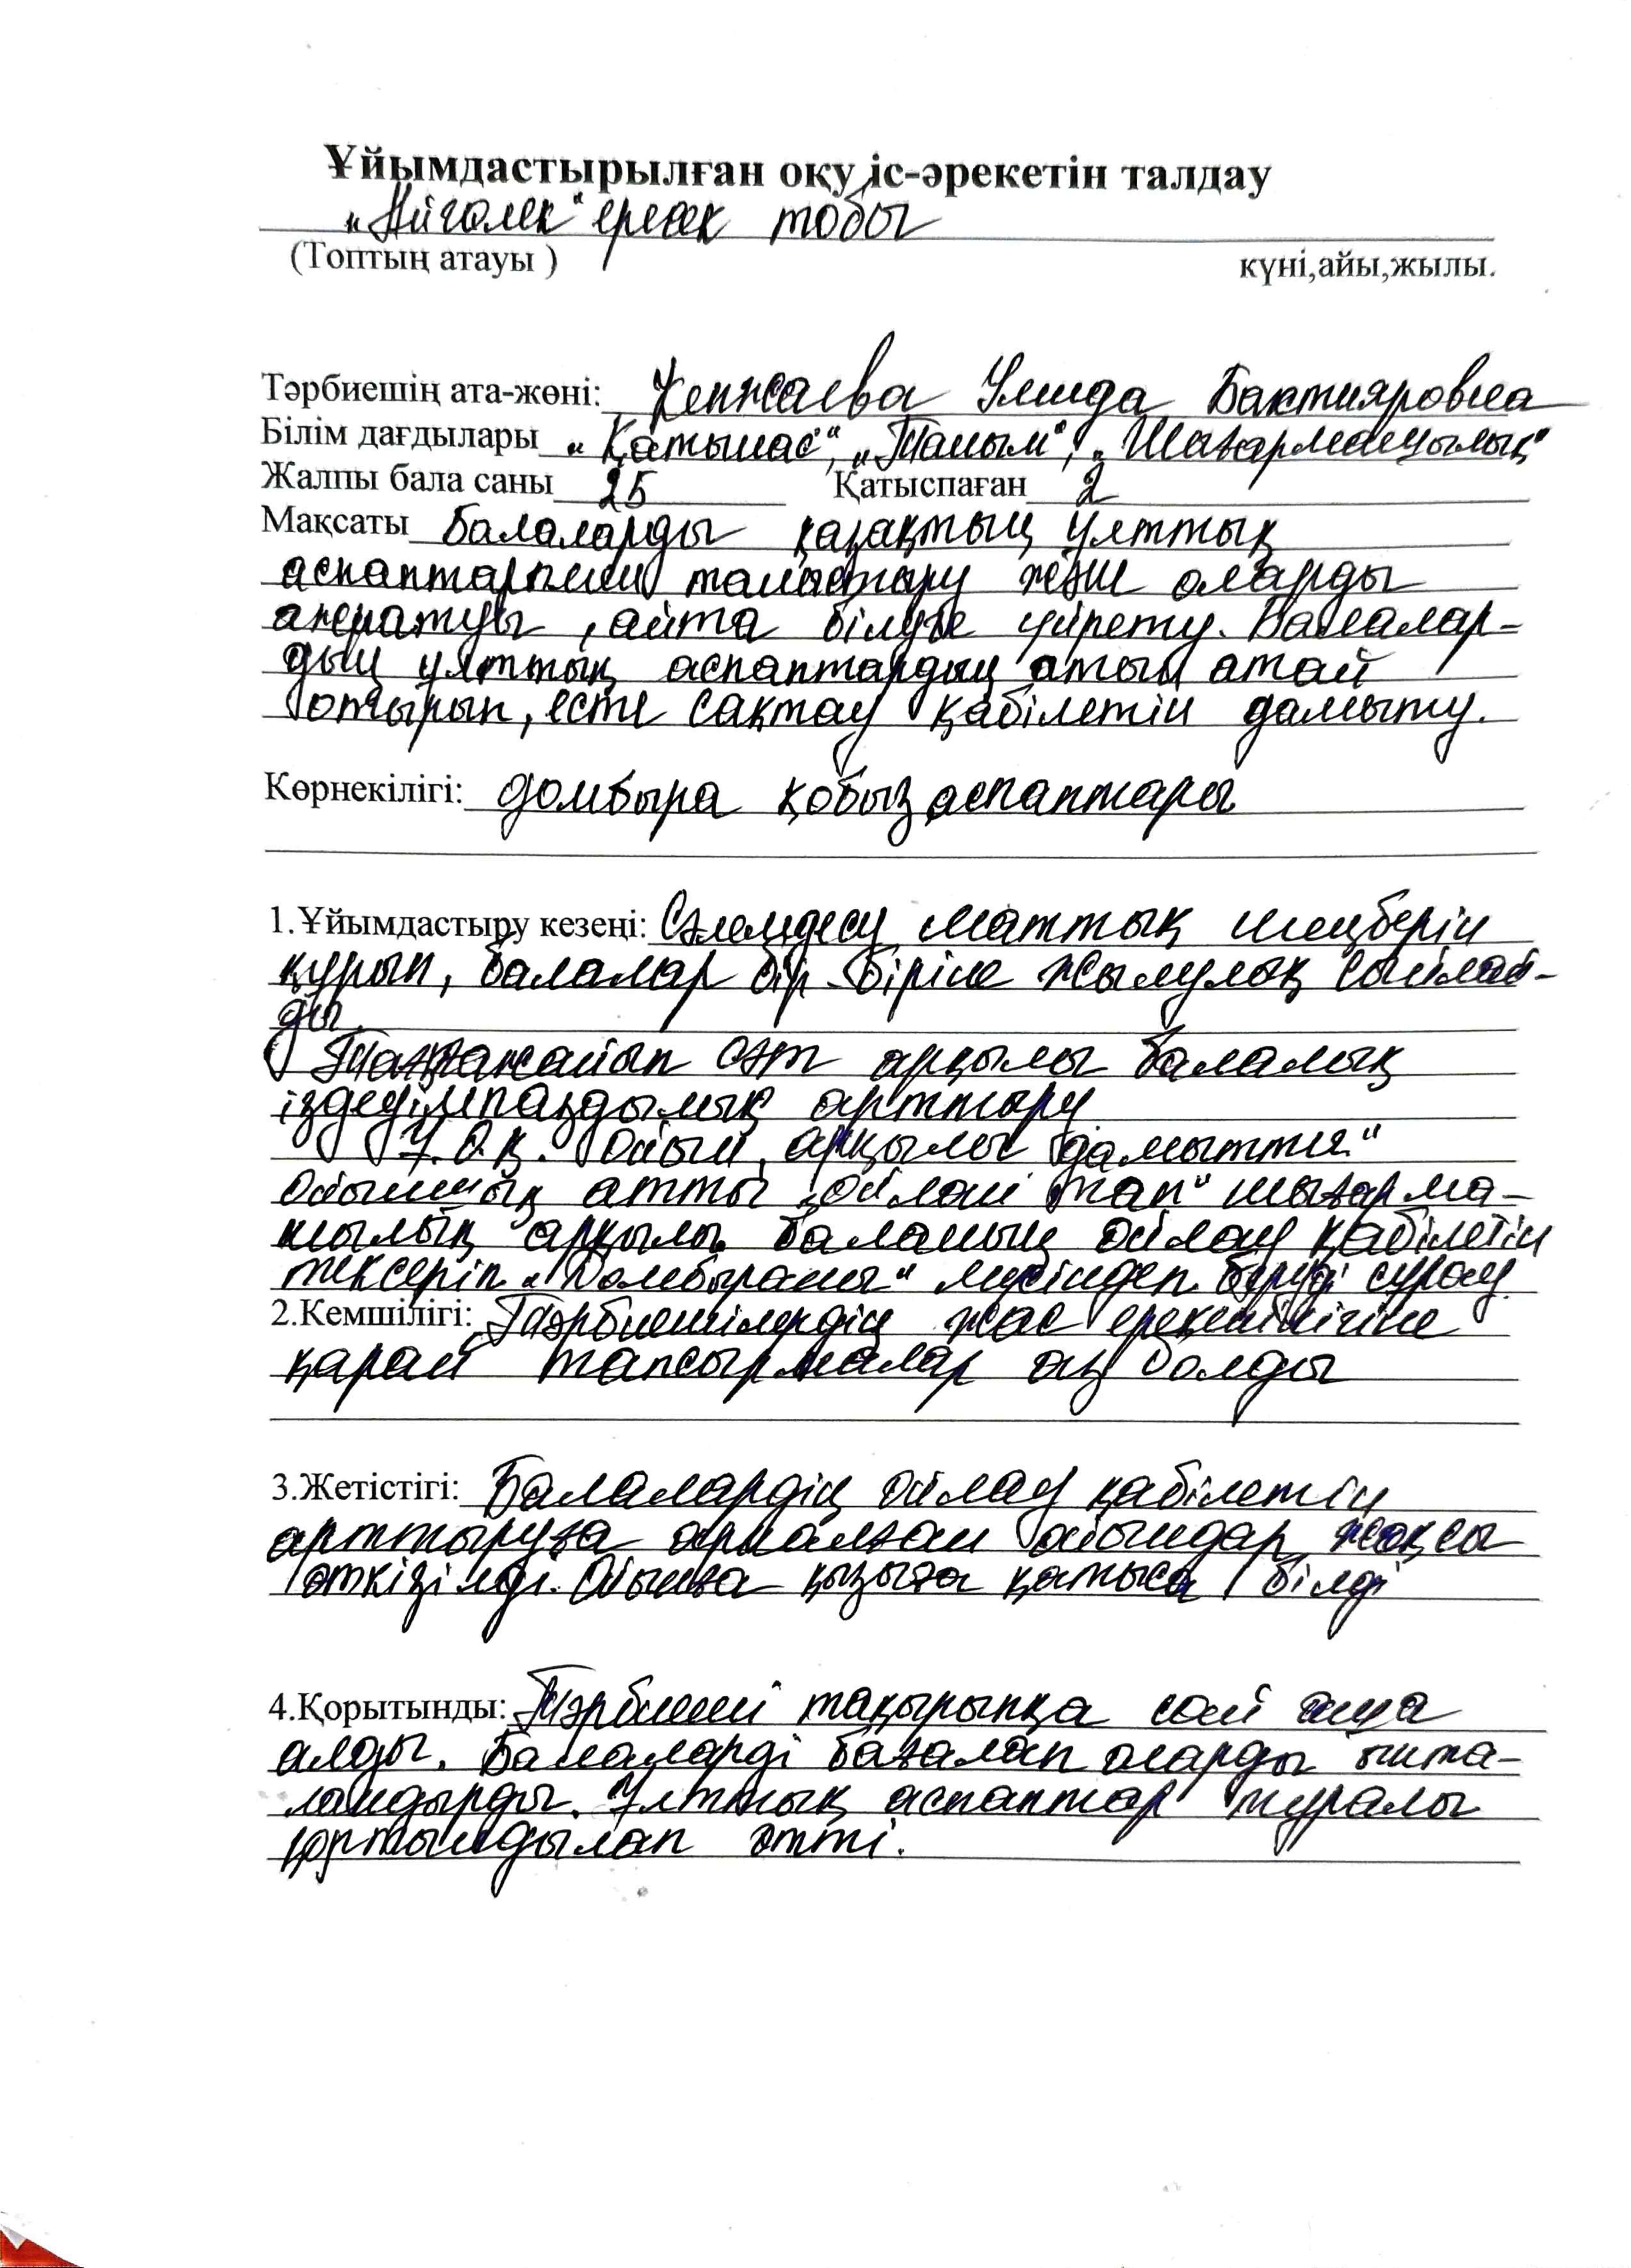 Ұйымдастырылған оқу іс-әрекетін талдау
„Айгөлек" ересек тобы
(Топтың атауы ) күні,айы,жылы.
Тәрбиешің ата-жөні: Кенжаева Улида Бактияровна
Білім дағдылары „Қатынас", „Таным", „Шығармашылық"
Жалпы бала саны 25 Қатыспаған 2
Мақсаты Балаларды қазақтың ұлттық
аспаптарымен таныстыру және оларды
ажыратуды, айта білуге үйрету. Балалар-
дың ұлттық аспаптардың атын атай
отырып, есте сақтау қабілетін дамыту.
Көрнекілігі: домбыра қобыз аспаптары
1.Ұйымдастыру кезеңі: Сәлемдесу шаттық шеңберін
құрып, балалар бір-біріне жылулық сыйлай-
ды.
Таңғажайып сәт арқылы балалық
ізденімпаздылық арттыру
Ұ.О.Қ. Ойын арқылы дамытты"
Ойыншық атты „ойлан тап" шығарма-
шылық арқылы баланың ойлау қабілетін
тексеріп „Домбыраны" мүсіндеп беруді сұрау
2.Кемшілігі: Тәрбиешілердің жас ерекшілігіне
қарай тапсырмалар аз болды
3.Жетістігі: Балалардің ойлау қабілетін
арттыруға арналған ойындар жақсы
өткізілді. Ойынға қызыға қатыса білді
4.Қорытынды: Тәрбиеші тақырыпқа сай аша
алды. Балаларді бағалап оларды ынта-
ландырды. Ұлттық аспаптар туралы
қортындылап өтті.